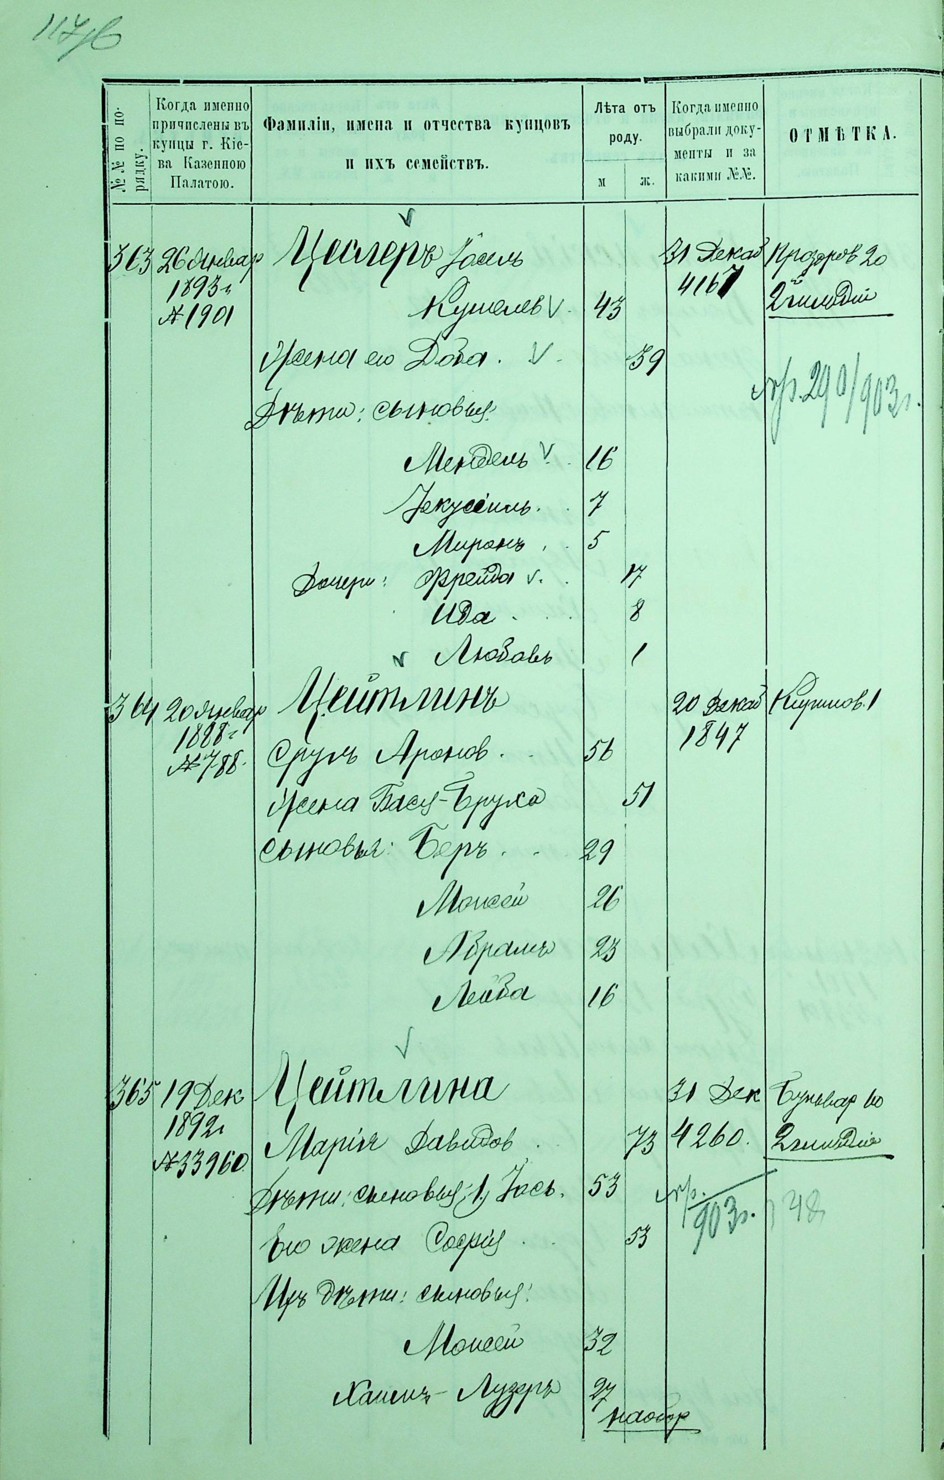 №№ по порядку.
Когда именно причислены въ купцы г. Кіева Казенною Палатою.
Фамиліи, имена и отчества купцовъ и ихъ семействъ.
Лѣта отъ роду.
м
ж.
Когда именно выбрали документы и за какими №№.
ОТМѢТКА.
363 26 Январ Цеслеръ Іосель 31 Декаб Прозоров 20
1893 г 4167 2 гильдіи
№ 1901 Кушелев 43
Жена его Доба. 39
пр. 290/903 г.
Дѣти: сыновья:
Мендель 16
Іекусіиль 7
Миронъ 5
Дочери: Фрейда 17
Ида 8
Любовь 1
364 20 Январ Цейтлинъ 20 Декаб Кирилов. 1
1888 г 1847
№ 788 Сруль Аронов 56
Жена Бася-Бруха 51
сыновья: Беръ 29
Моисей 26
Абрамъ 23
Лейба 16
365 19 Дек Цейтлина 31 Дек Бульвар
1892 г
№ 33960 Марія Давидов 73 4260. 2 гильдіи
Дѣти: сыновья: 1, Іось. 53 пр.
903 г.
Его жена Софія 53
Ихъ дѣти: сыновья:
Моисей 32
Хаимъ-Лузеръ 27
наобор